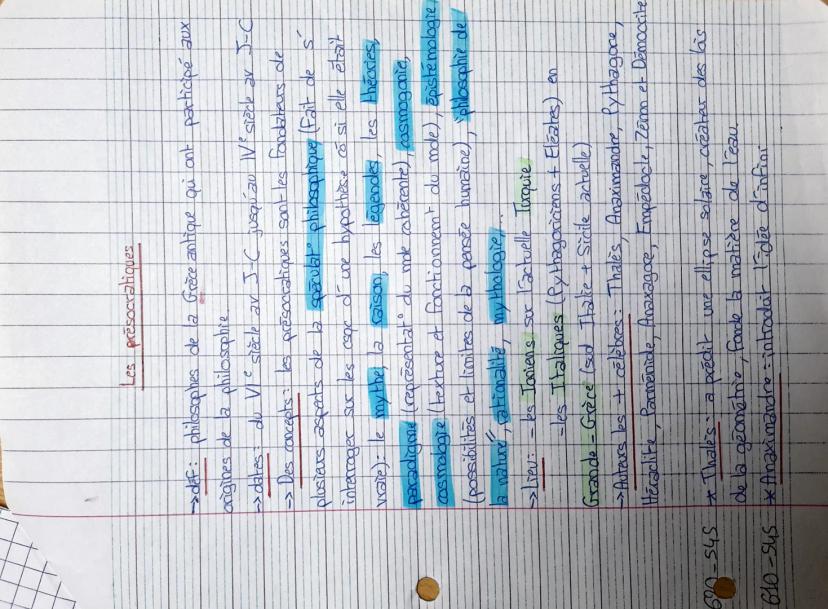 Les présocratiques
→ déf: philosophes de la Grèce antique qui ont participé aux
origines de la philosophie
→ dates: du VIe siècle av J-C jusqu'au IVe siècle av J-C
→ Des concepts: les présocratiques sont les fondateurs de
plusieurs aspects de la spéculat° philosophique (Fait de s'
interroger sur les csqc d'une hypothèse cô si elle était
vraie): le mythe, la raison, les légendes, les théories,
paradigme (représentat° du mde cohérente), cosmogonie,
cosmologie (texture et fonctionnemt du mde), épistémologie
(possibilités et limites de la pensée humaine), "philosophie de
la nature", rationalité, mythologie, ...
→ Lieu: - les Ioniens sur l'actuelle Turquie
- les Italiques (Pythagoriciens + Eléates) en
Grande-Grèce (sud Italie + Sicile actuelle)
→ Auteurs les + célèbres: Thalès, Anaximandre, Pythagore,
Héraclite, Parménide, Anaxagore, Empédocle, Zénon et Démocrite
* Thalès: a prédit une ellipse solaire, créateur des lois
de la géométrie, fonde la matière de l'eau.
610-545 * Anaximandre: introduit l'idée d'infini